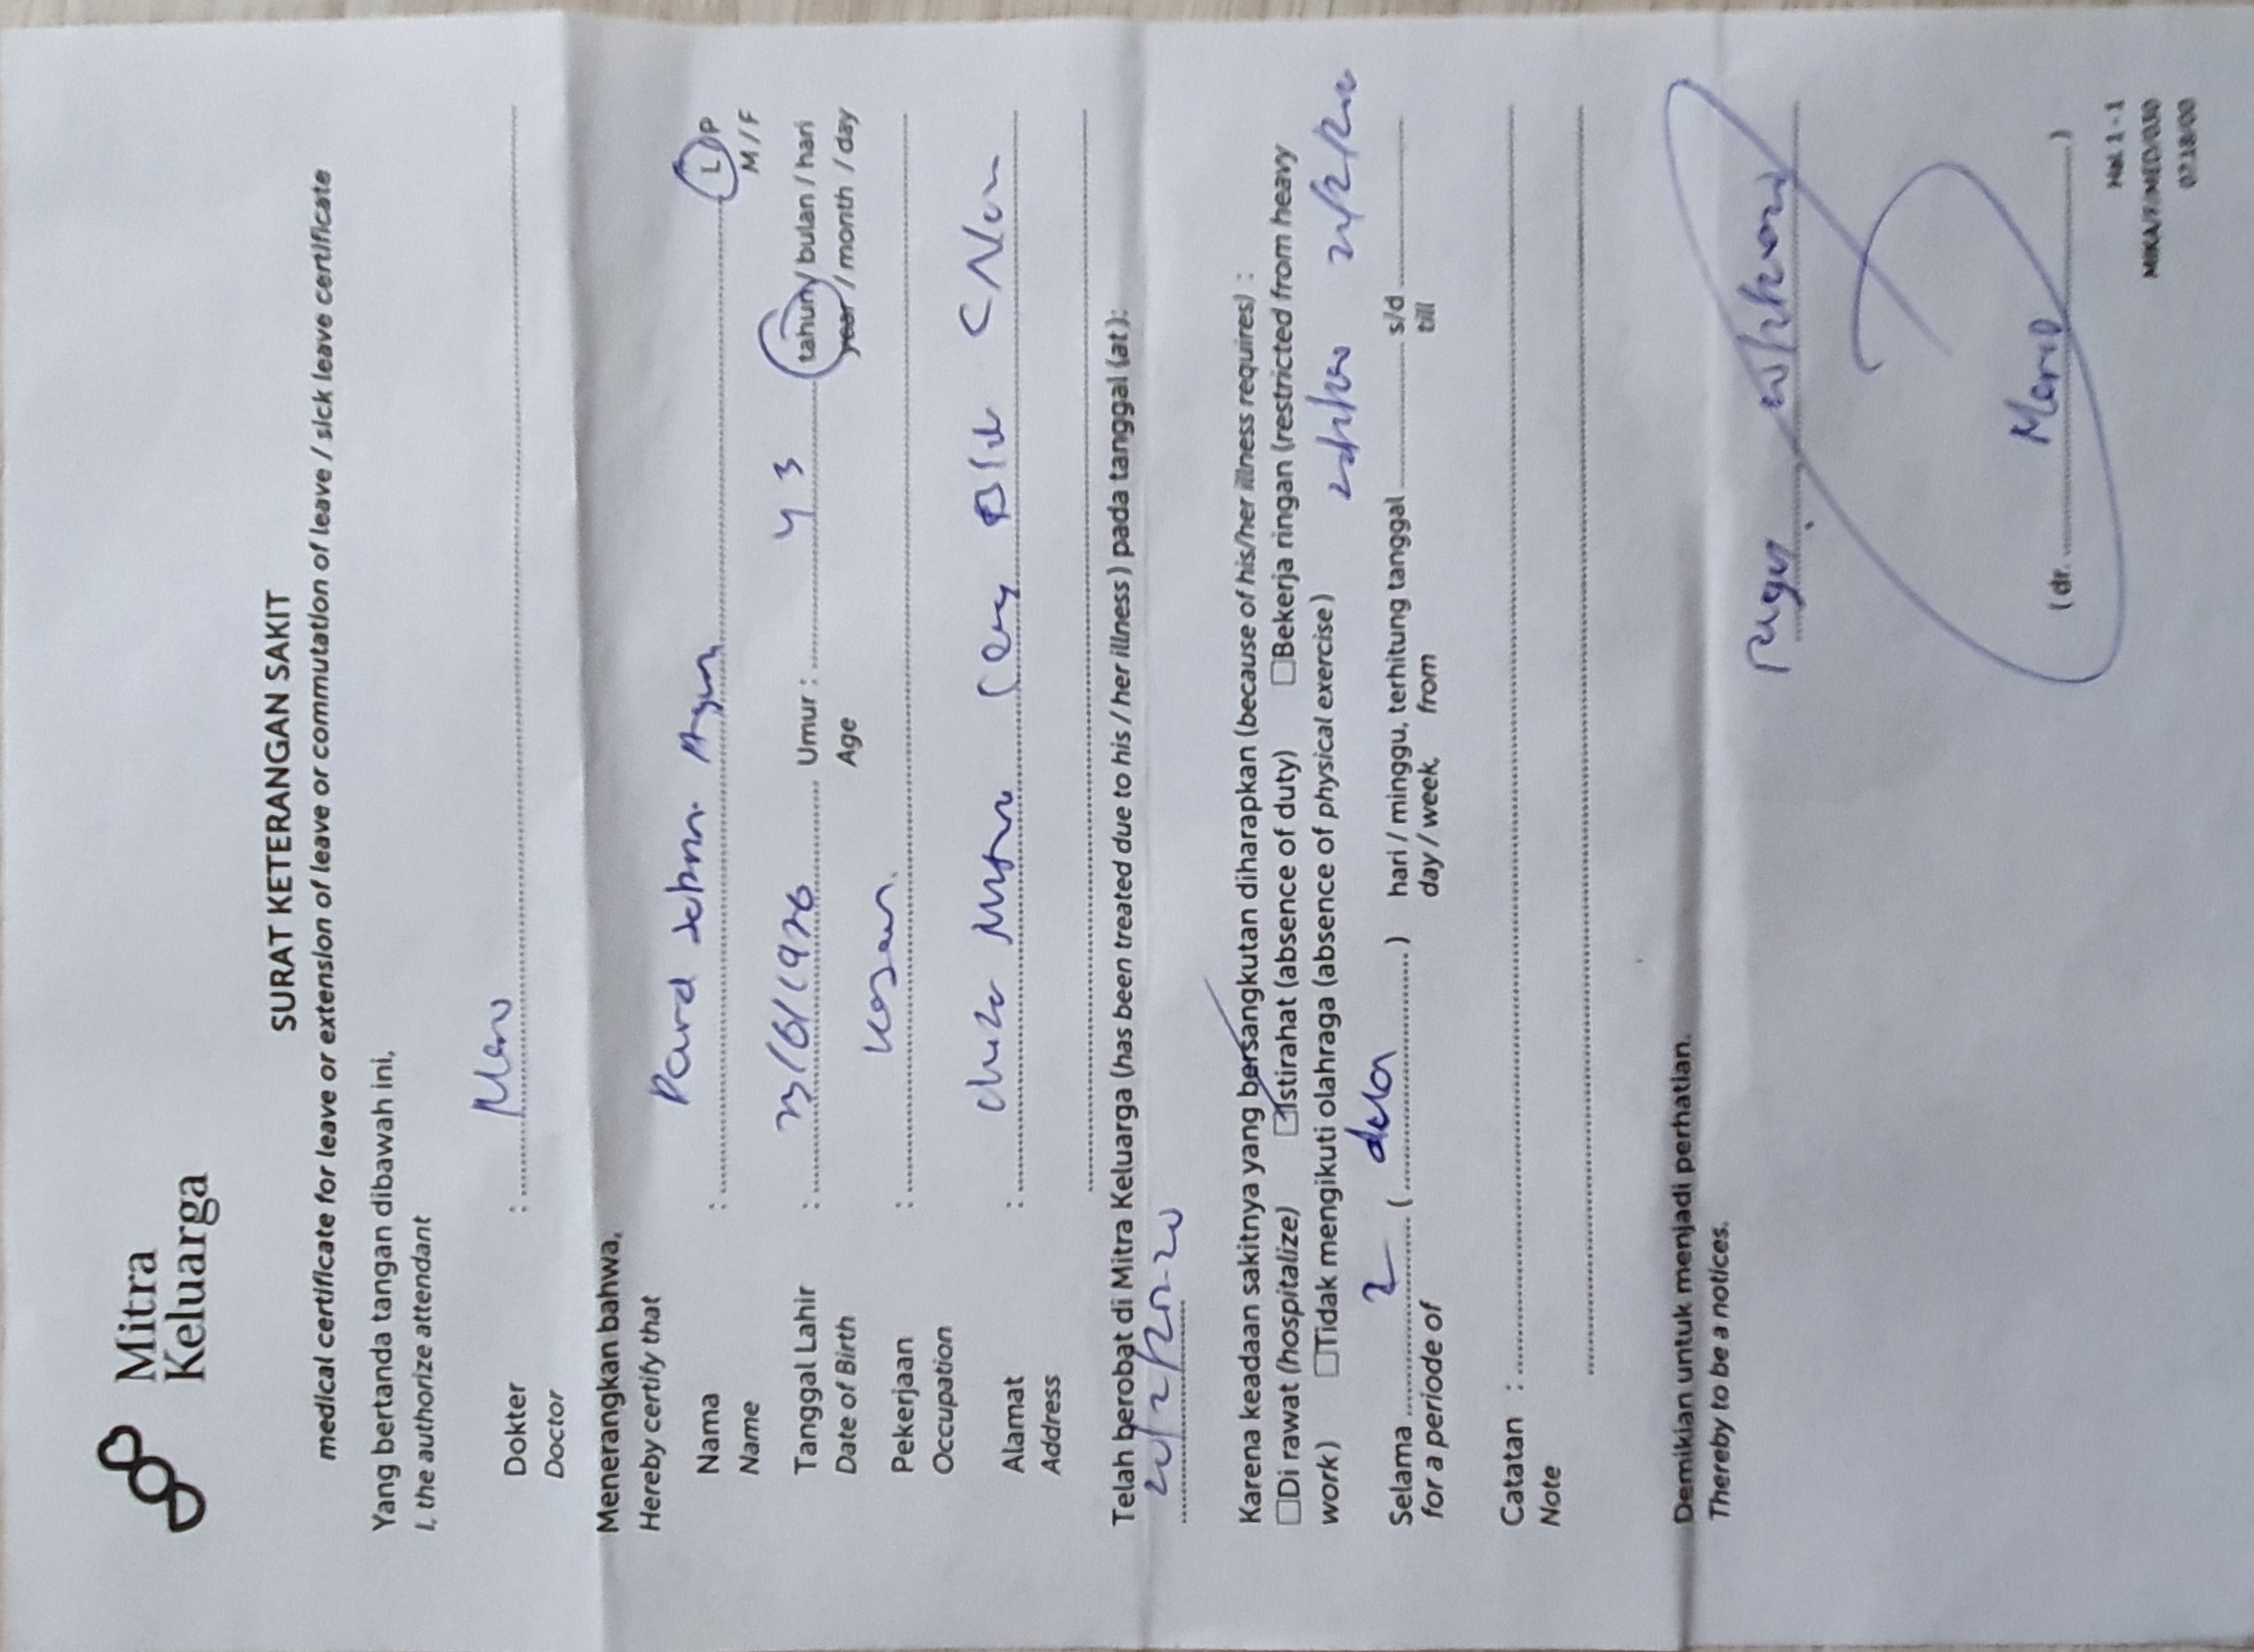 Mitra
Keluarga
SURAT KETERANGAN SAKIT
medical certificate for leave or extension of leave or commutation of leave / sick leave certificate
Yang bertanda tangan dibawah ini,
I, the authorize attendant
Dokter :
Doctor
Menerangkan bahwa,
Hereby certify that
Nama : L/P
Name M / F
Tanggal Lahir : Umur : 43 tahun / bulan / hari
Date of Birth Age year / month / day
Pekerjaan :
Occupation
Alamat :
Address
Telah berobat di Mitra Keluarga (has been treated due to his / her illness) pada tanggal (at):
Karena keadaan sakitnya yang bersangkutan diharapkan (because of his/her illness requires) :
Di rawat (hospitalize) Istirahat (absence of duty) Bekerja ringan (restricted from heavy
work) Tidak mengikuti olahraga (absence of physical exercise)
Selama 2 ( ) hari / minggu, terhitung tanggal s/d
for a periode of day / week, from till
Catatan :
Note
Demikian untuk menjadi perhatian.
Thereby to be a notices.
(dr. Mario )
Hal 1 - 1
MIKA/F/MED/030
07.18/00